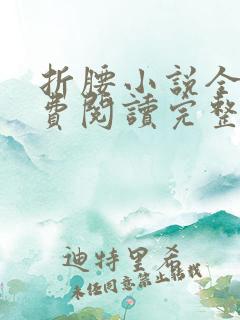 折腰小说全
费阅读完整
迪特里希
未经同意禁止转载